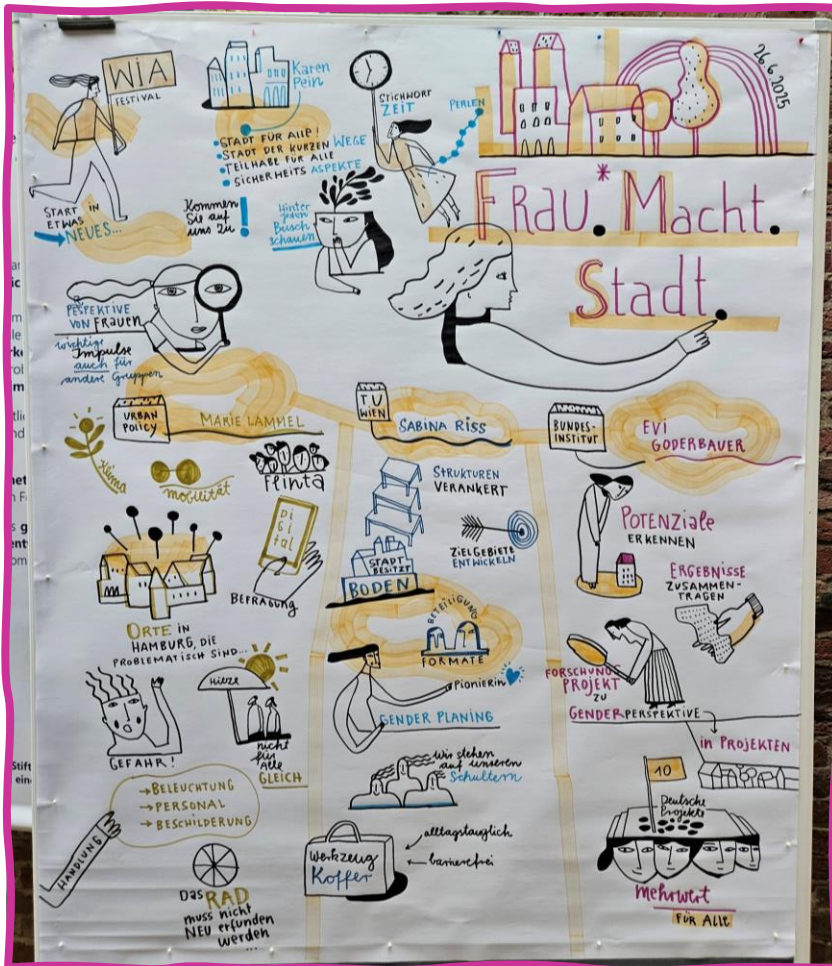 WIA
FESTIVAL
START IN
ETWAS
NEUES...
Karen
Pein
• STADT FÜR ALLE!
• STADT DER KURZEN WEGE
• TEILHABE FÜR ALLE
• SICHERHEITS ASPEKTE
Kommen
Sie auf
uns zu!
STICHWORT
ZEIT
PERLEN
Hinter
jeden
Busch
schauen
26.6.2025
Frau.* Macht.
Stadt.
PESPEKTIVE
VON FRAUEN
wichtige
Impulse
auch für
andere Gruppen
URBAN
POLICY
MARIE LAMMEL
Klima
mobilität
Flinta
Di
Gi
tal
BEFRAGUNG
ORTE IN
HAMBURG, DIE
PROBLEMATISCH SIND...
GEFAHR!
HITZE
nicht
für
Alle
GLEICH
→ BELEUCHTUNG
→ PERSONAL
→ BESCHILDERUNG
HANDLUNG
Das RAD
muss nicht
NEU erfunden
werden
...
TU
WIEN
SABINA RISS
STRUKTUREN
VERANKERT
ZIELGEBIETE
ENTWICKELN
STADT
BESITZT
BODEN
BETEILIGUNG
FORMATE
Pionierin
GENDER PLANING
wir stehen
auf unseren
Schultern
Werkzeug
Koffer
alltagstauglich
barrierefrei
BUNDES-
INSTITUT
EVI
GODERBAUER
POTENZIALE
ERKENNEN
ERGEBNISSE
ZUSAMMEN-
TRAGEN
FORSCHUNGS
PROJEKT
ZU
GENDERPERSPEKTIVE
in PROJEKTEN
10
Deutsche
Projekte
mehrwert
FÜR ALLE